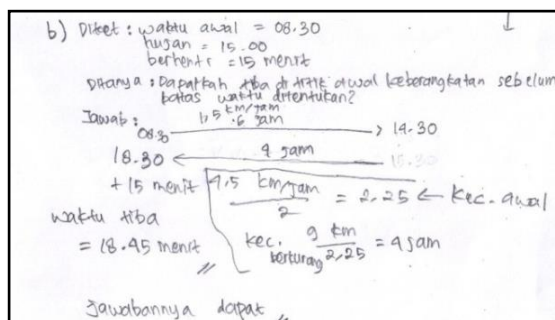 b) Diket : waktu awal = 08.30
hujan = 15.00
berhenti = 15 menit
Ditanya : Dapatkah tiba di titik awal keberangkatan sebelum
batas waktu ditentukan?
Jawab :
1,5 km/jam
. 6 jam
08.30 → 14.30
18.30 ← 4 jam
+ 15 menit
4,5 km/jam / 2 = 2,25 ← kec. awal
waktu tiba
= 18.45 menit
kec. berkurang 9 km / 2,25 = 4 jam
Jawabannya dapat